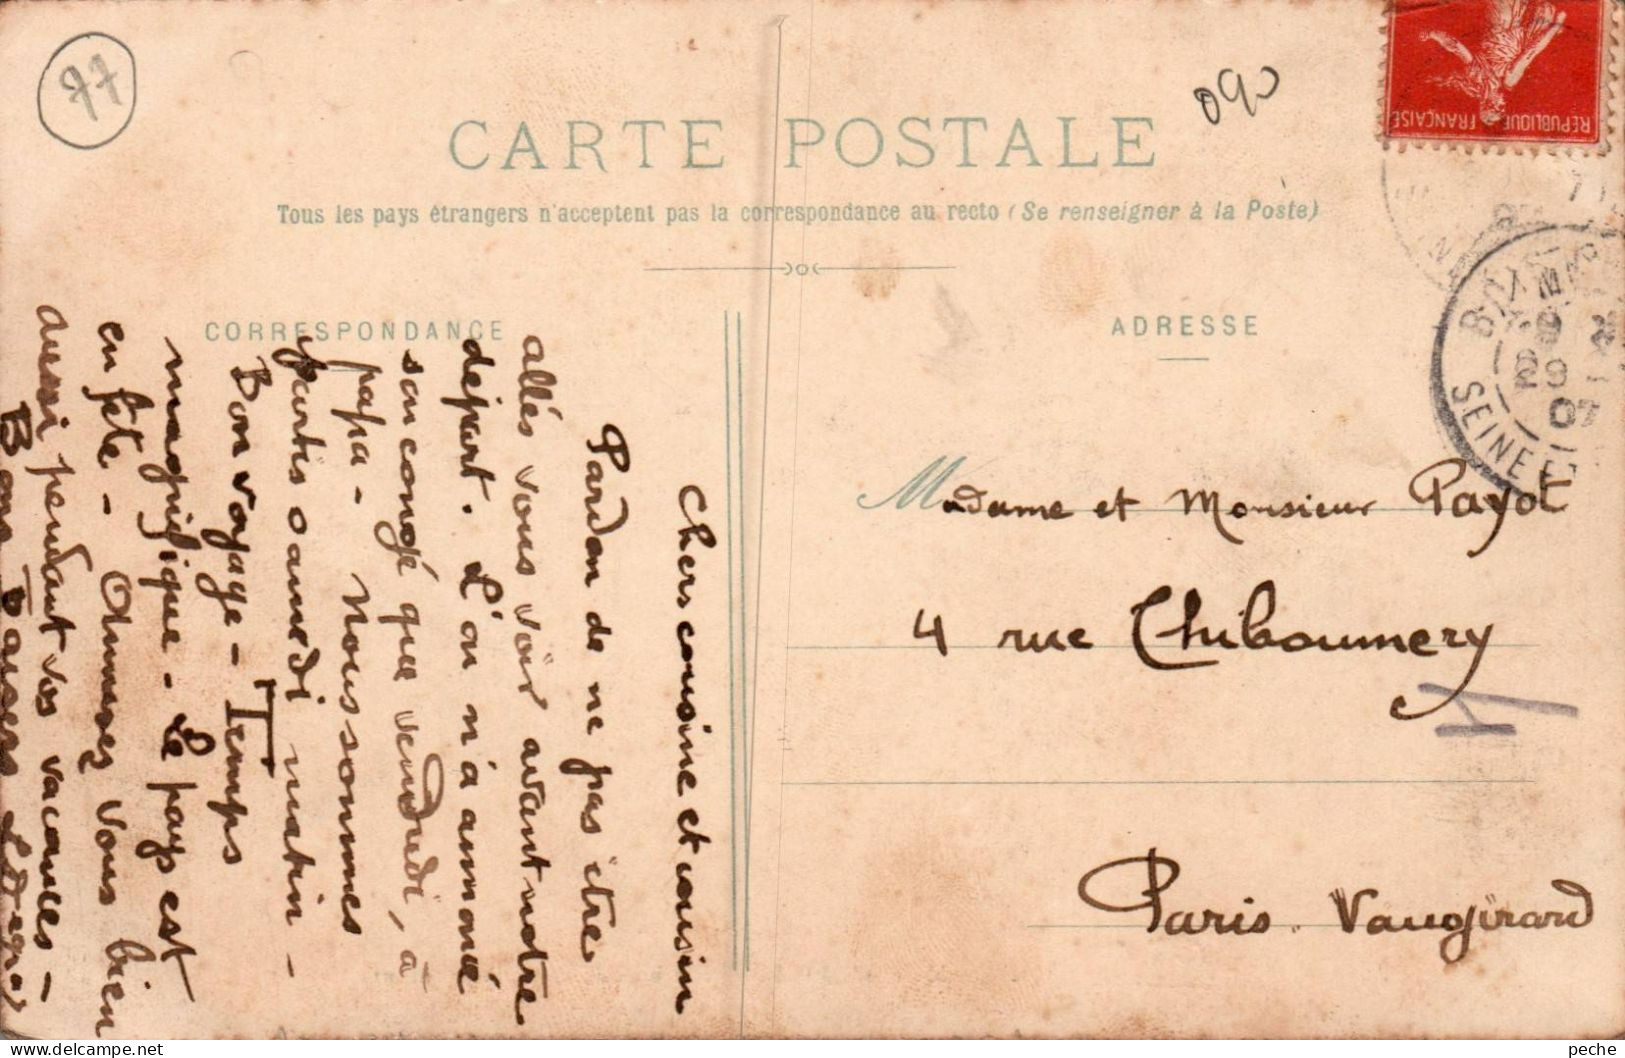 77
090
CARTE POSTALE
Tous les pays étrangers n'acceptent pas la correspondance au recto (Se renseigner à la Poste)
RÉPUBLIQUE FRANÇAISE
CORRESPONDANCE
ADRESSE
SEINE ET
07
Chers cousine et cousin
Pardon de ne pas être
allés vous voir avant notre
départ. L'on n'a annoncé
son congé que vendredi, à
papa - Nous sommes
partis samedi matin -
Bon voyage - Temps
magnifique - Le pays est
en fête - Amusez vous bien
aussi pendant vos vacances -
Bons Baisers
Madame et Monsieur Payot
4 rue Thiboumery
Paris Vaugirard
peche